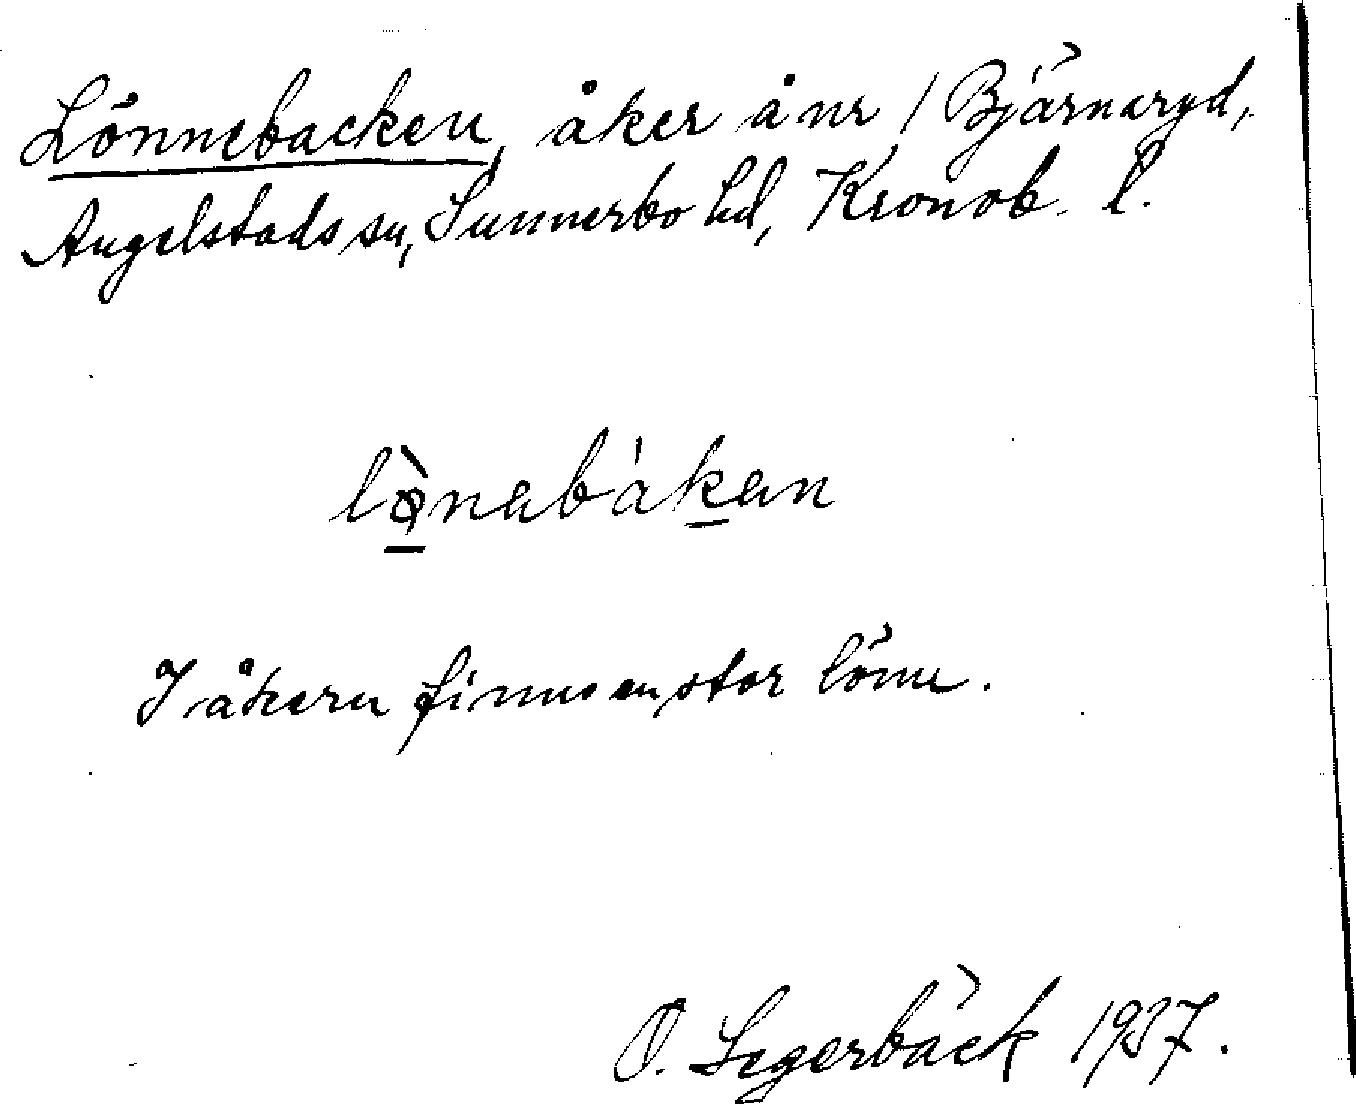 Lönnebacken, åker å nr 1 Bjärnaryd,
Angelstads sn, Sunnerbo hd, Kronob. l.
lø̀nabákan
I åkern finns en stor lönn.
O. Segerbäck 1937.